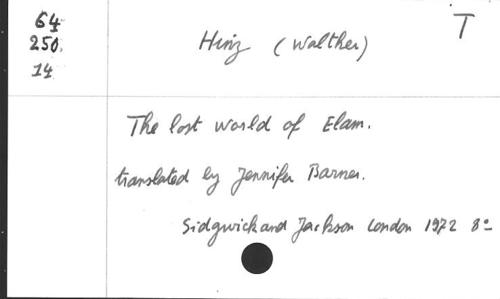 64
250.
14
T
Hinz (Walther)
The lost world of Elam.
translated by Jennifer Barnes.
Sidgwick and Jackson London 1972 8º